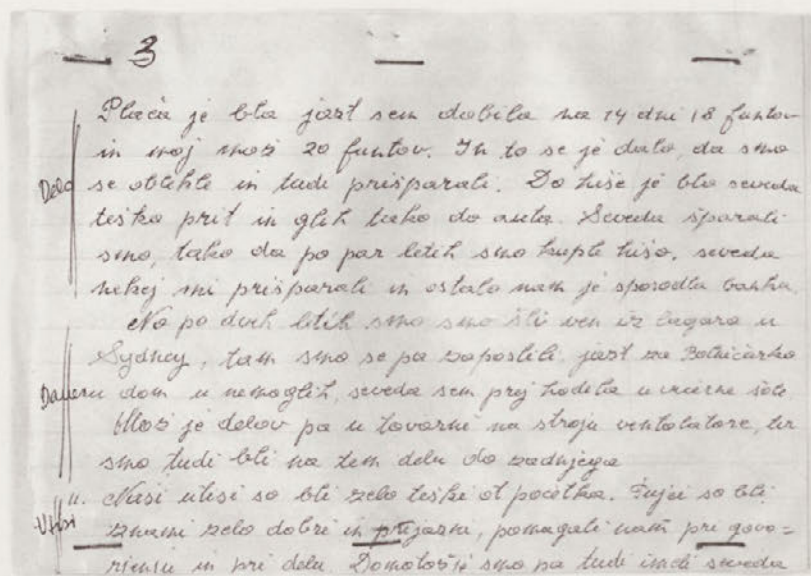 3
Plača je bla jast sem dabila na 14 dni 18 funtov
in moj mož 20 funtov. In to se je dalo, da smo
Delo
se oblekle in tudi prišparali. Do hiše je blo seveda
teško prit in glih tako do auta. Seveda šparali
smo, tako da po par letih smo kuple hišo, seveda
nekej mi prišparali in ostalo nam je sposodla banka.
No po dveh letih smo smo šli ven iz lagara u
Sydney, tam smo se pa zaposlili jast za Bolničarko
u dom u nemoglih, seveda sem prej hodila u večerne šole
Mož je delov pa u tovarni na stroju ventolatore, ter
smo tudi bli na tem delu do zadnjega
u. Naši utisi so bli zelo teški ot početka. Tujci so bli
Utisi
znami zelo dobri in prijazni, pomagali nam pri govo=
rjenju in pri delu. Domotožje smo pa tudi imeli seveda